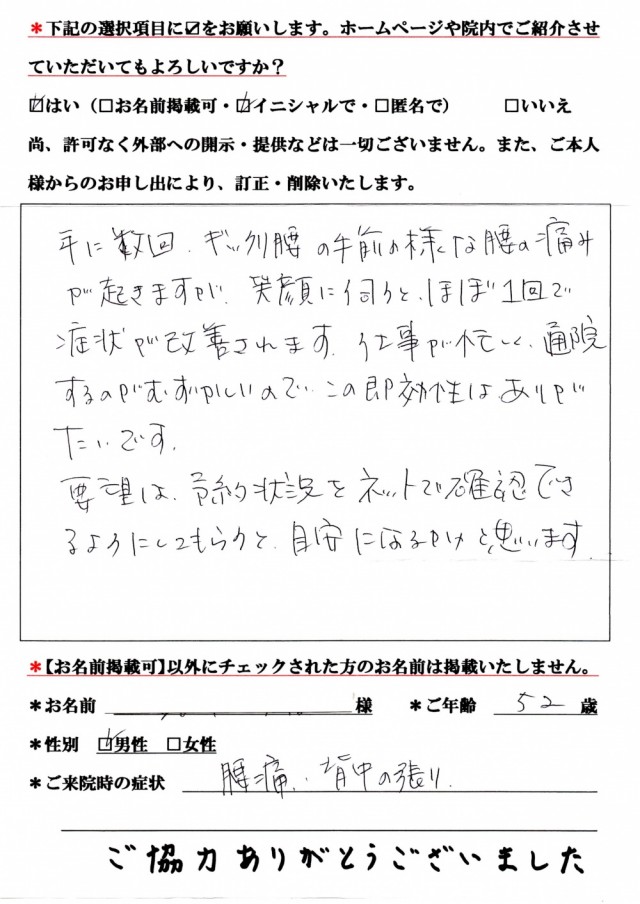 *下記の選択項目に☑をお願いします。ホームページや院内でご紹介させ
ていただいてもよろしいですか？
☑はい（□お名前掲載可・☑イニシャルで・□匿名で）　□いいえ
尚、許可なく外部への開示・提供などは一切ございません。また、ご本人
様からのお申し出により、訂正・削除いたします。
年に数回、ギックリ腰の手前の様な腰の痛み
が起きますが、笑顔に伺うと、ほぼ1回で
症状が改善されます。仕事が忙しく、通院
するのがむずかしいので、この即効性はありが
たいです。
要望は、予約状況をネットで確認でき
るようにしてもらうと、目安になるかと思います。
*【お名前掲載可】以外にチェックされた方のお名前は掲載いたしません。
*お名前　様　*ご年齢　52　歳
*性別　☑男性　□女性
*ご来院時の症状　腰痛、背中の張り。
ご協力ありがとうございました